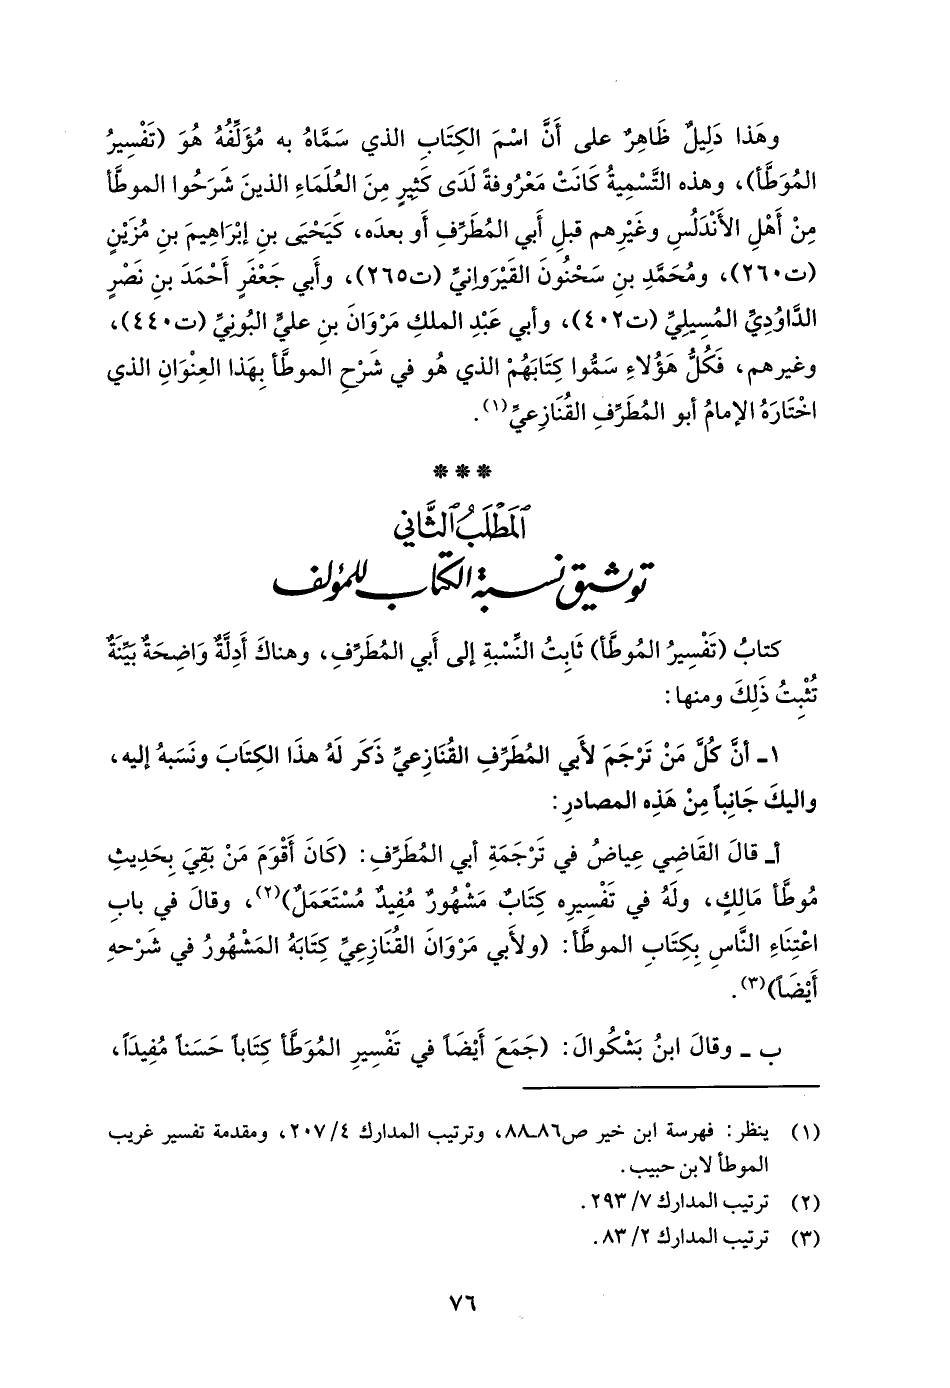 وهَذا دَلِيلٌ ظَاهِرٌ على أَنَّ اسْمَ الكِتَابِ الذي سَمَّاهُ به مُؤَلِّفُهُ هُوَ (تَفْسِيرُ
المُوَطَّأ)، وهذه التَّسْمِيةُ كَانَتْ مَعْرُوفةً لَدَى كَثِيرٍ مِنَ العُلَمَاءِ الذينَ شَرَحُوا الموطَّأ
مِنْ أَهْلِ الأَنْدَلُسِ وغَيْرِهم قبلِ أبي المُطَرِّفِ أو بعدَه، كَيَحْيَى بنِ إبْرَاهِيمَ بنِ مُزَيْنٍ
(ت٢٦٠)، ومُحَمَّدِ بنِ سَحْنُونَ القَيْرَوانِيِّ (ت٢٦٥)، وأبي جَعْفَرٍ أَحْمَدَ بنِ نَصْرٍ
الدَّاوُدِيِّ المُسِيلِيِّ (ت٤٠٢)، وأبي عَبْدِ الملكِ مَرْوَانَ بنِ عليٍّ البُونِيِّ (ت٤٤٠)،
وغيرهم، فَكُلُّ هَؤُلاءِ سَمُّوا كِتَابَهُمْ الذي هُو في شَرْحِ الموطَّأ بِهَذا العِنْوَانِ الذي
اخْتَارَهُ الإمامُ أبو المُطَرِّفِ القُنَازِعيِّ(١).
***
المَطْلَبُ الثَّاني
توثيق نسبة الكتاب للمؤلف
كتابُ (تَفْسِيرُ الموطَّأ) ثَابِتُ النِّسْبةِ إلى أَبي المُطَرِّفِ، وهناكَ أَدِلَّةٌ وَاضِحَةٌ بيِّنَةٌ
تُثْبِتُ ذَلِكَ ومنها:
١ـ أنَّ كُلَّ مَنْ تَرْجَمَ لأبي المُطَرِّفِ القُنَازِعيِّ ذَكَرَ لَهُ هذَا الكِتَابَ ونَسَبهُ إليه،
واليكَ جَانِباً مِنْ هَذِه المصادرِ:
أـ قالَ القَاضِي عِياضُ في تَرْجَمَةِ أبي المُطَرِّفِ: (كَانَ أَقْوَمَ مَنْ بَقِيَ بِحَدِيثِ
مُوطَّأ مَالِكٍ، ولَهُ في تَفْسِيرِه كِتَابٌ مَشْهُورٌ مُفِيدٌ مُسْتَعَملٌ)(٢)، وقالَ في بابِ
اعْتِنَاءِ النَّاسِ بِكِتَابِ الموطَّأ: (ولأبي مَرْوَانَ القُنَازِعيِّ كِتَابَهُ المَشْهُورُ في شَرْحهِ
أَيْضَاً)(٣).
ب ـ وقالَ ابنُ بَشْكُوالَ: (جَمَعَ أَيْضَاً في تَفْسِيرِ المُوَطَّأ كِتَاباً حَسَناً مُفِيدَاً،
(١) ينظر: فهرسة ابن خير ص٨٦ـ٨٨، وترتيب المدارك ٢٠٧/٤، ومقدمة تفسير غريب
الموطأ لابن حبيب.
(٢) ترتيب المدارك ٢٩٣/٧.
(٣) ترتيب المدارك ٨٣/٢.
٧٦